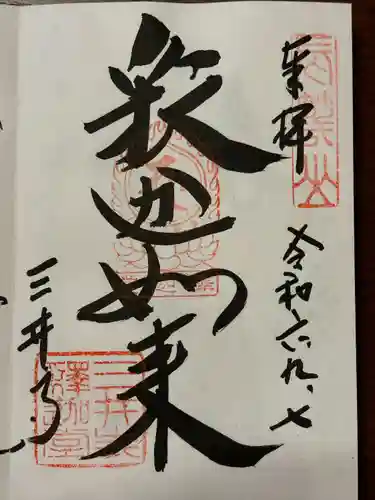 奉拝
令和六、九、七
釈迦如来
三井寺
三井寺
釋迦堂
長等山